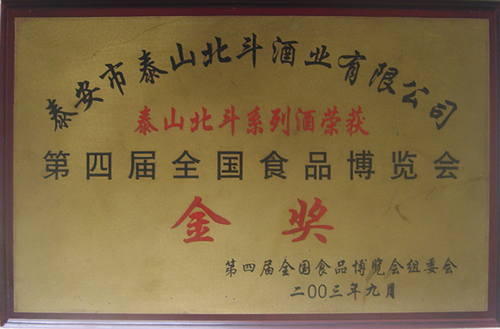 泰安市泰山北斗酒业有限公司
泰山北斗系列酒荣获
第四届全国食品博览会
金奖
第四届全国食品博览会组委会
二00三年九月